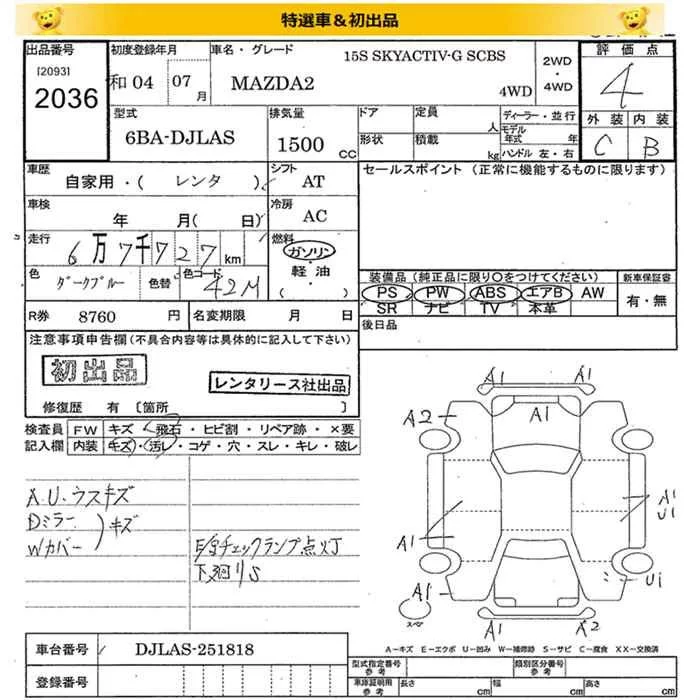 特選車＆初出品
出品番号 初度登録年月 車名・グレード 15S SKYACTIV-G SCBS 2WD・4WD 評価点
[2093] 2036 和04 07月 MAZDA2 4WD 4
型式 排気量 ドア 定員 人 ディーラー・並行 外装 内装
6BA-DJLAS 1500 CC 形状 積載 kg モデル年式 年 ハンドル 左・右 C B
車歴 自家用・( レンタ ) シフト AT セールスポイント (正常に機能するものに限ります)
車検 年 月( 日) 冷房 AC
走行 6万7千727km 燃料 ガソリン 軽油 ( )
色 ダークブルー 色替 色コード 42M
装備品 (純正品に限り〇をつけてください) 新車保証書
PS PW ABS エアB AW 有・無
SR ナビ TV 本革
R券 8760 円 名変期限 月 日 後日品
注意事項申告欄 (不具合内容等は具体的に記入して下さい)
初出品
レンタリース社出品
修復歴 有 [箇所 ]
検査員記入欄 FW キズ・飛石・ヒビ割・リペア跡・×要
内装 キズ・汚レ・コゲ・穴・スレ・キレ・破レ
A.U.ウスキズ
Dミラー
Wカバー )キズ
E/Gチェックランプ点灯
下廻りS
A1 A1
A2 A1
A1 A1 U1
A1 U1
スペア A1 A2
A－キズ E－エクボ U－凹み W－補修跡 S－サビ C－腐食 XX－交換済
車台番号 DJLAS-251818
登録番号
型式指定番号 参考 類別区分番号 参考
車庫証明用 参考 長さ cm 幅 cm 高さ cm